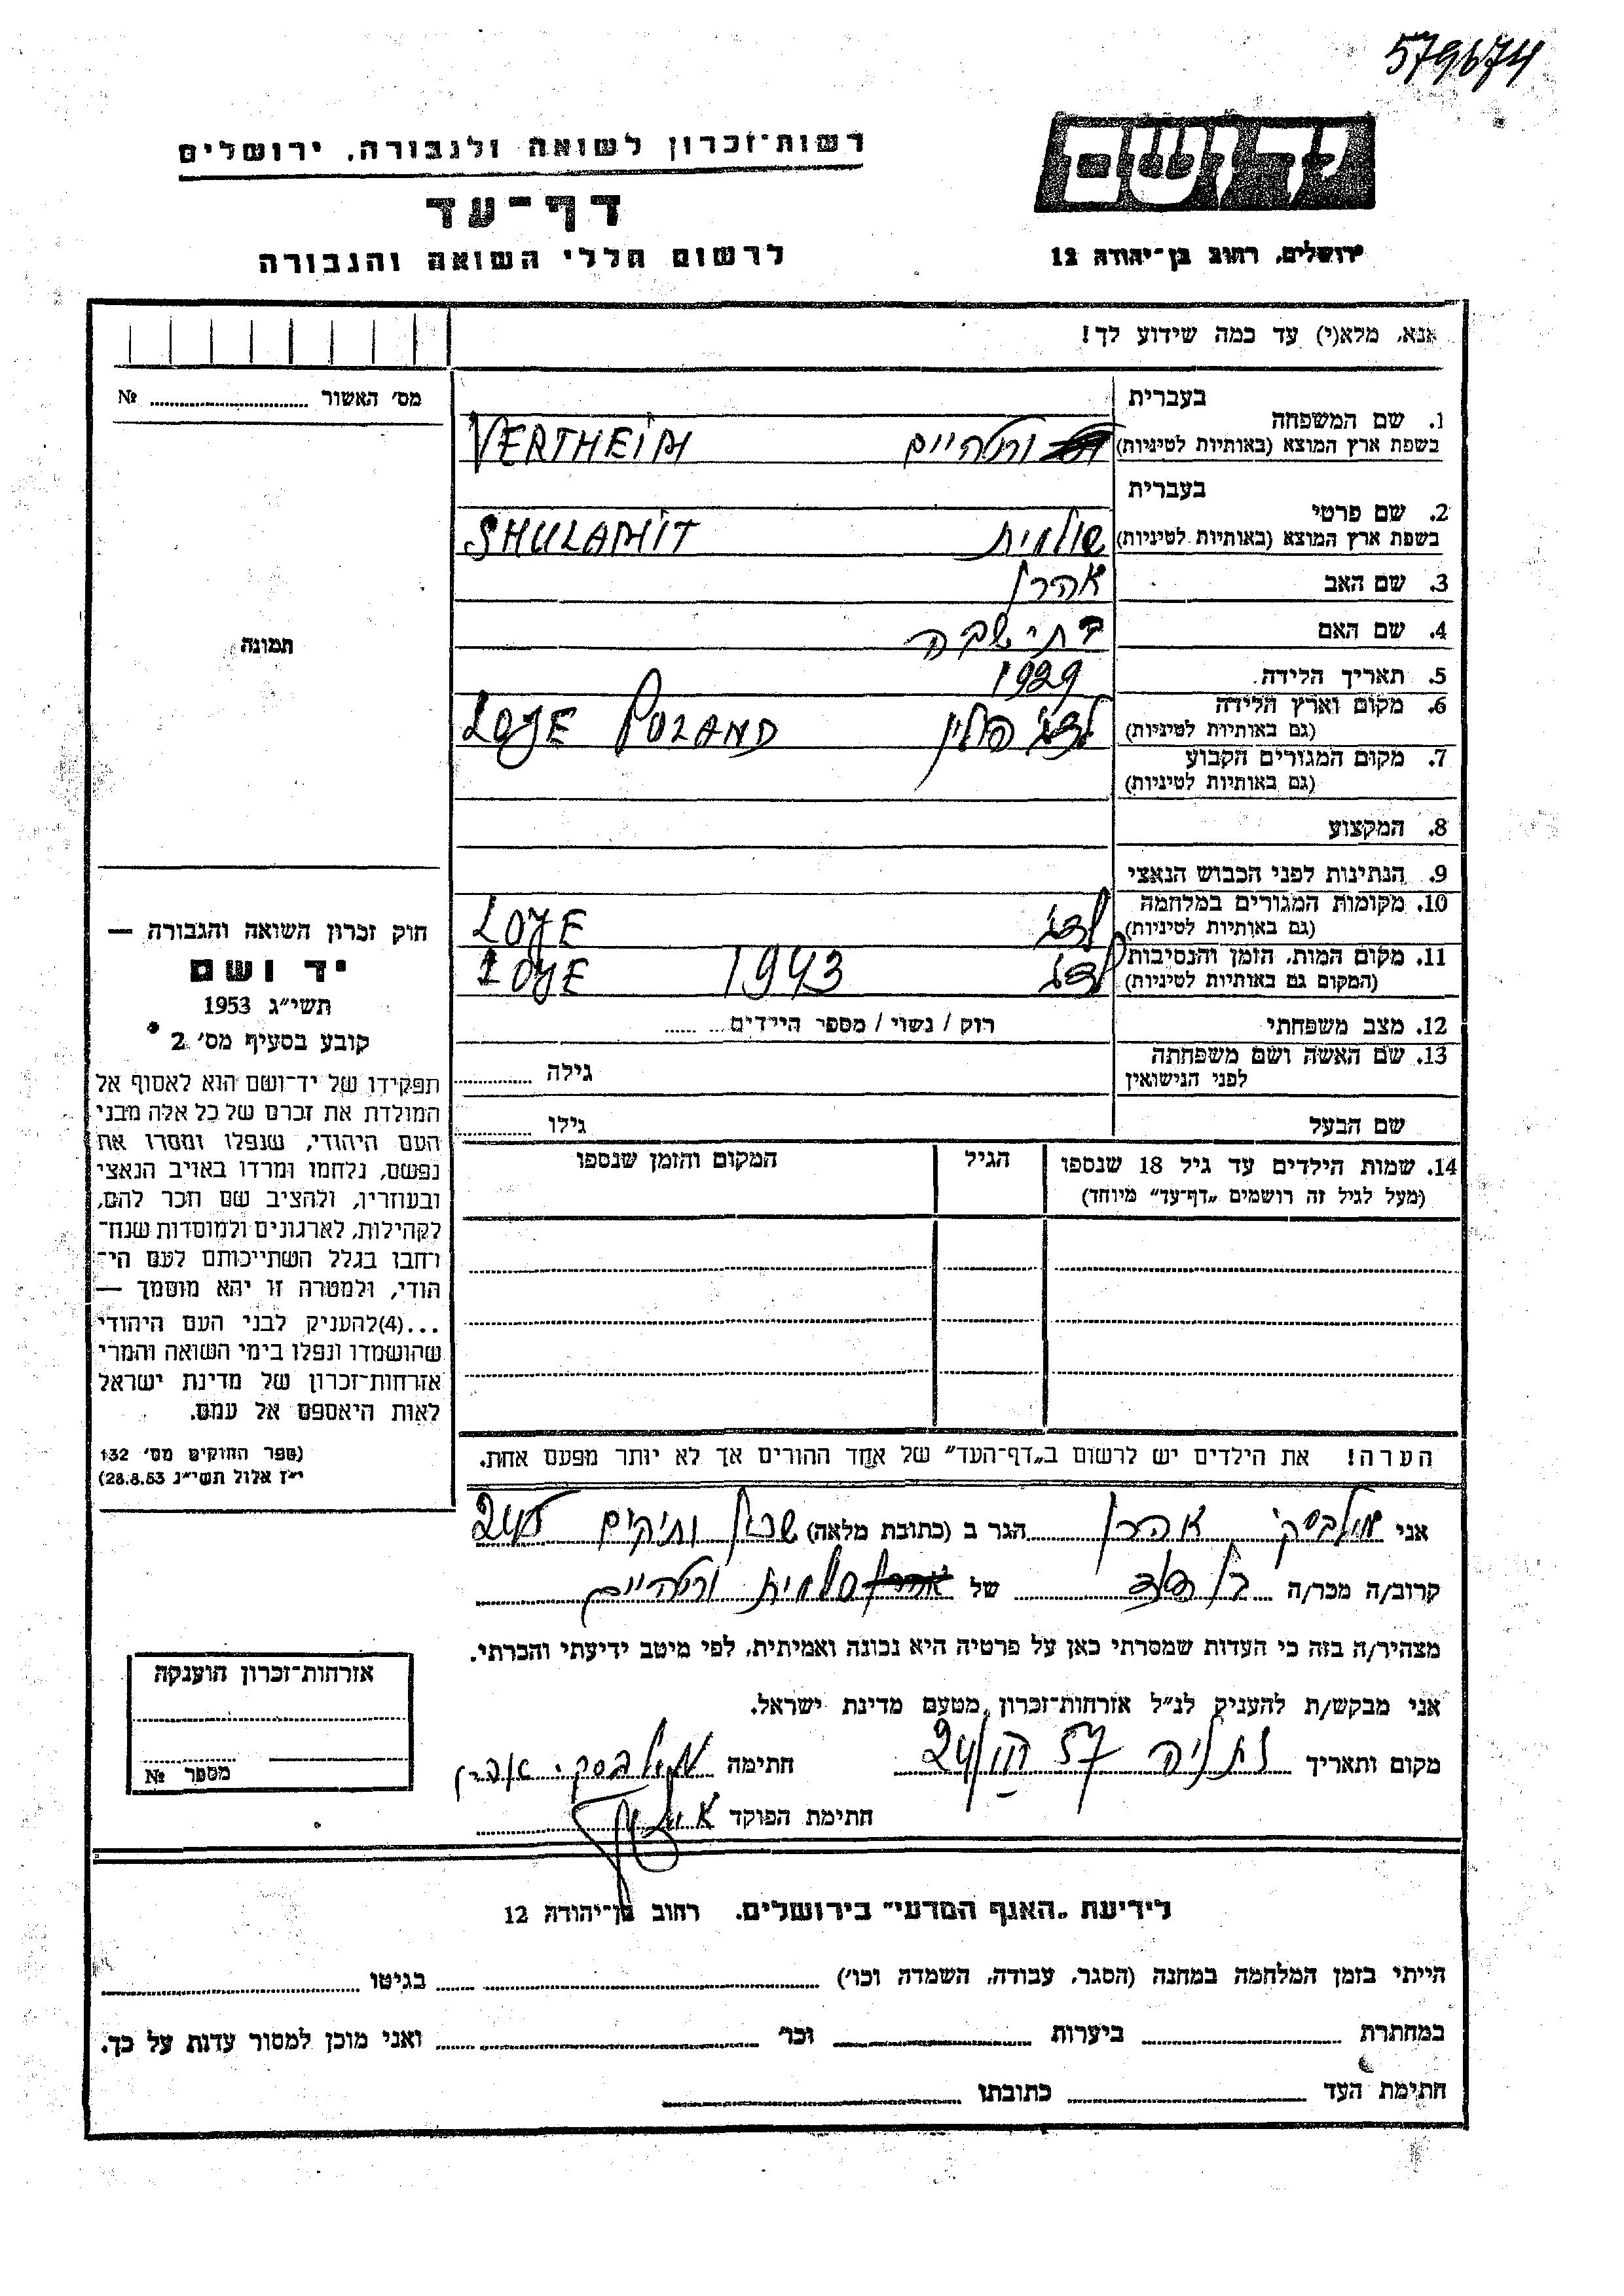 579674
יד ושם
רשות־זכרון לשואה ולגבורה, ירושלים
דף־עד
לרשום חללי השואה והגבורה
ירושלים, רחוב בן־יהודה 12
אנא, מלא(י) עד כמה שידוע לך!
מס' האשור № 
בעברית
1. שם המשפחה
בשפת ארץ המוצא (באותיות לטיניות) ורטהיים VERTHEIM
בעברית
2. שם פרטי
בשפת ארץ המוצא (באותיות לטיניות) שולמית SHULAMIT
3. שם האב אהרן
4. שם האם בתי שבה
5. תאריך הלידה 1929
6. מקום וארץ הלידה
(גם באותיות לטיניות) לודג' פולין LOJE POLAND
7. מקום המגורים הקבוע
(גם באותיות לטיניות)
8. המקצוע
9. הנתינות לפני הכבוש הנאצי
10. מקומות המגורים במלחמה
(גם באותיות לטיניות) לודג' LOJE
11. מקום המות, הזמן והנסיבות
(המקום גם באותיות לטיניות) לודג' 1943 LOJE
12. מצב משפחתי רוק / נשוי / מספר הילדים
13. שם האשה ושם משפחתה
לפני הנישואין גילה
שם הבעל גילו
14. שמות הילדים עד גיל 18 שנספו הגיל המקום והזמן שנספו
(מעל לגיל זה רושמים „דף־עד" מיוחד)
הערה! את הילדים יש לרשום ב„דף־העד" של אחד ההורים אך לא יותר מפעם אחת.
תמונה
חוק זכרון השואה והגבורה —
יד ושם
תשי"ג 1953
קובע בסעיף מס' 2
תפקידו של יד־ושם הוא לאסוף אל
המולדת את זכרם של כל אלה מבני
העם היהודי, שנפלו ומסרו את
נפשם, נלחמו ומרדו באויב הנאצי
ובעוזריו, ולהציב שם וזכר להם,
לקהילות, לארגונים ולמוסדות שנח־
רחבו בגלל השתייכותם לעם הי־
הודי, ולמטרה זו יהא מוסמך —
...(4)להעניק לבני העם היהודי
שהושמדו ונפלו בימי השואה והמרי
אזרחות־זכרון של מדינת ישראל
לאות היאספם אל עמם.
(ספר החוקים מס' 132
י"ז אלול תשי"ג 28.8.53)
אני אהרן הגר ב (כתובת מלאה) שכון ותיקים
קרוב/ה מכר/ה בן דוד של שולמית ורטהיים
מצהיר/ה בזה כי העדות שמסרתי כאן על פרטיה היא נכונה ואמיתית, לפי מיטב ידיעתי והכרתי.
אני מבקש/ת להעניק לנ"ל אזרחות־זכרון מטעם מדינת ישראל.
מקום ותאריך נתניה 57 חתימה
חתימת הפוקד
אזרחות־זכרון הוענקה
מספר №
לידיעת „האגף המדעי" בירושלים, רחוב בן־יהודה 12
הייתי בזמן המלחמה במחנה (הסגר, עבודה, השמדה וכו') בגיטו
במחתרת ביערות וכו' ואני מוכן למסור עדות על כך.
חתימת העד כתובתו